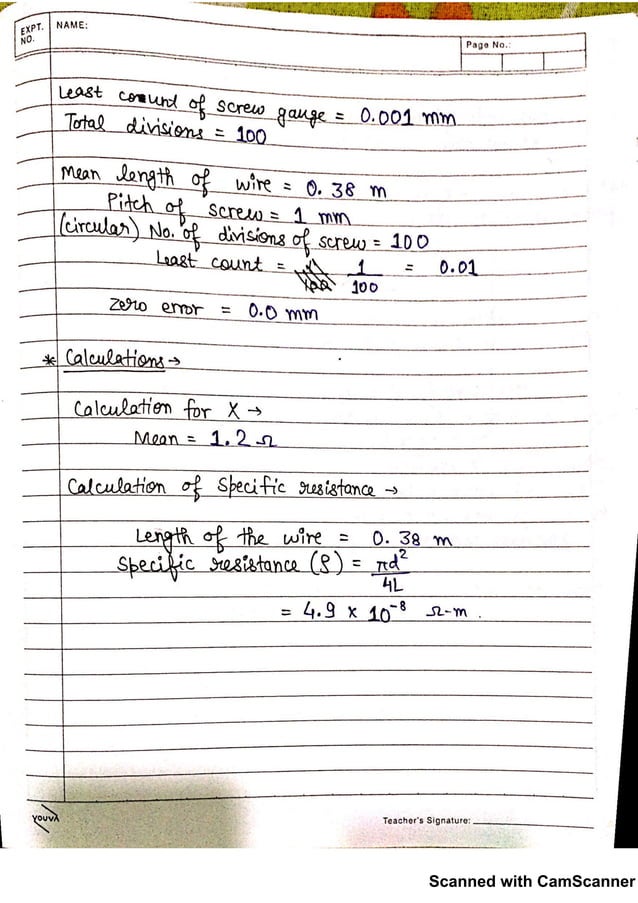 EXPT. NO.
NAME:
Page No.:
Least count of screw gauge = 0.001 mm
Total divisions = 100
Mean length of wire = 0.38 m
Pitch of screw = 1 mm
(circular) No. of divisions of screw = 100
Least count = 1/100 = 0.01
Zero error = 0.0 mm
* Calculations →
Calculation for X →
Mean = 1.2 Ω
Calculation of Specific resistance →
Length of the wire = 0.38 m
Specific resistance (ρ) = πd²/4L
= 4.9 × 10⁻⁸ Ω-m.
YOUVA
Teacher's Signature:
Scanned with CamScanner